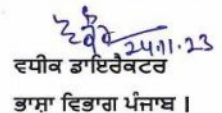 24.11.23
ਵਧੀਕ ਡਾਇਰੈਕਟਰ
ਭਾਸ਼ਾ ਵਿਭਾਗ ਪੰਜਾਬ ।